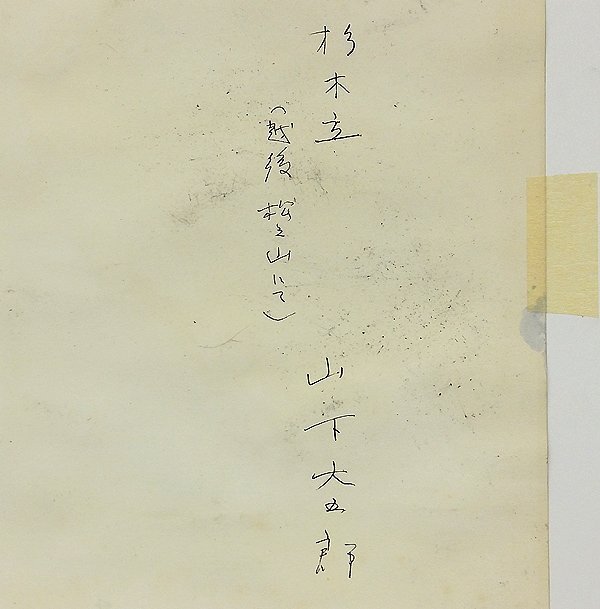 杉木立
(越後 松之山にて)
山下大五郎